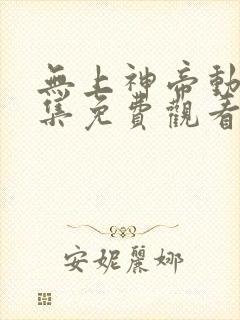 無上神帝動
集免費觀看
安妮麗娜